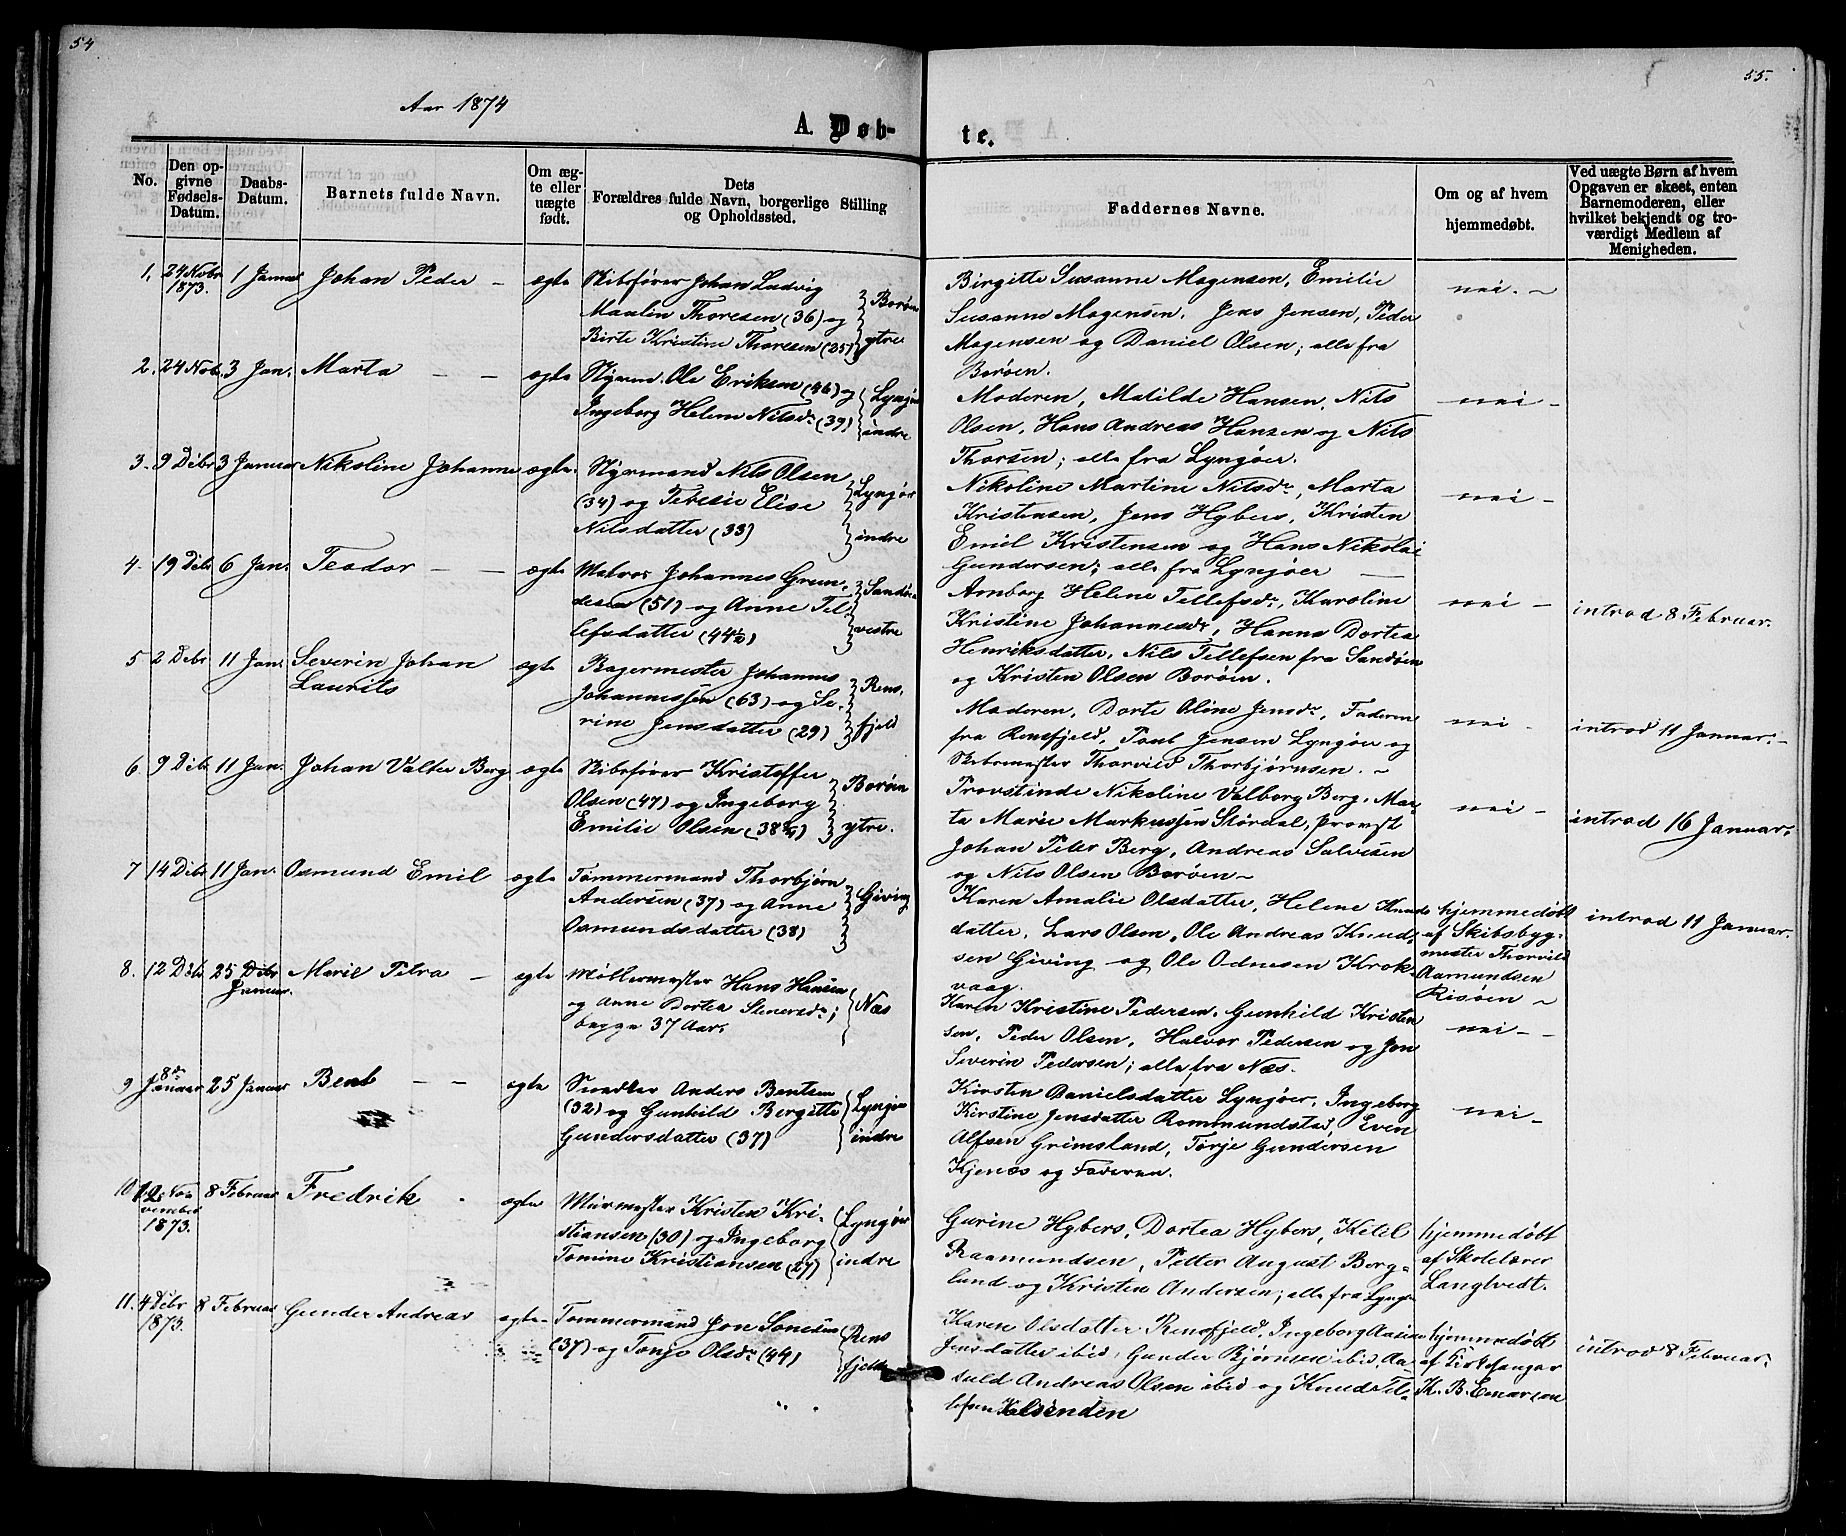 54
55.
Aar 1874
A. Døb-
te.
No.
Den op-
givne
Fødsels-
Datum.
Daabs-
Datum.
Barnets fulde Navn.
Om æg-
te eller
uægte
født.
Dets
Forældres fulde Navn, borgerlige Stilling
og Opholdssted.
Faddernes Navne.
Om og af hvem
hjemmedøbt.
Ved uægte Børn af hvem
Opgaven er skeet, enten
Barnemoderen, eller
hvilket bekjendt og tro-
værdigt Medlem af
Menigheden.
1. 24 Nobr 1 Januar Johan Peder — ægte Skibsfører Johan Ludvig
1873.
Maulin Thoresen (36) og
Birte Kristine Thoresen (25)
Borøen
ytre
Birgitte Susanne Mogensen, Emilie
Susanne Mogensen, Jens Jensen, Peder
Mogensen og Daniel Olsen; alle fra
Borøen.
nei. —
2. 24 Nob. 3 Jan. Marta — — ægte Styrm. Ole Eriksen (46) og
Ingeborg Helene Nilsdr (39)
Lyngør
indre
Moderen, Matilde Hansen, Nils
Olsen, Hans Andreas Hansen og Nils
Thorsen; alle fra Lyngøer.
nei —
3. 9 Debr 3 Januar Nikoline Johanne ægte. Styrmand Nils Olsen
(34) og Teresie Elise
Nilsdatter (33)
Lyngør
indre
Nikoline Martine Nilsdr, Marta
Kristensen, Jens Hybers, Kristen
Emil Kristensen og Hans Nikolai
Gundersen; alle fra Lyngøer —
nei —
4. 19 Debr 6 Jan. Teodor — — ægte Matros Johannes Grun-
desen (51) og Anne Tel-
lefsdatter (44½)
Sandøen
vestre
Amborg Helene Tellefsdr, Karoline
Kristine Johannesdr, Hanna Dortea
Henriksdatter, Nils Tellefsen fra Sandøen
og Kristen Olsen Borøen.
nei —
introd 8 Februar.
5 2 Debr 11 Jan. Severin Johan
Laurits
ægte Bagermester Johannes
Johannessen (63) og Se-
rine Jensdatter (29)
Rens-
fjeld
Moderen, Dorte Oline Jensdr, Faderen
fra Rensfjeld, Poul Jensen Lyngøer og
Skibsmester Thorvild Thorbjørnsen. —
nei —
introd 11 Januar. —
6. 9 Debr 11 Jan. Johan Valter Berg ægte Skibsfører Kristoffer
Olsen (47) og Ingeborg
Emilie Olsen (38¾)
Borøen
ytre.
Provstinde Nikoline Valborg Berg, Mar-
ta Marie Markussen Stordal, Provst
Johan Peter Berg, Andreas Salvesen
og Nils Olsen Borøen —
nei —
introd 16 Januar.
7 14 Debr 11 Jan. Osmund Emil ægte Tømmermand Thorbjørn
Andersen (37) og Anne
Osmundsdatter (38)
Giving
Karen Amalie Olsdatter, Helene Knuds
datter, Lars Olsen, Ole Andreas Knud-
sen Giving og Ole Odnesen Krok-
vaag.
hjemmedøbt
af Skibsbyg-
mester Thorvild
Aamundsen
Risøen —
introd 11 Januar.
8. 12 Debr 25 Debr Marie Petra — ægte Møllermester Hans Hansen
Januar.
og Anne Dortea Stenersdr;
begge 37 Aar.
Næs
Karen Kristine Pedersen, Gunhild Kristen
sen, Peder Olsen, Halvor Pedersen og Jon
Severin Pedersen; alle fra Næs.
nei —
9 8de
Januar 25 Januar Bent — — ægte Snedker Anders Bentsen
(32) og Gunhild Bergitte
Gundersdatter (37)
Lyngør
indre
Kirsten Danielsdatter Lyngøer, Ingeborg
Kirstine Jensdatter Rommundstad, Even
Alfsen Grimsland, Terje Gundersen
Kjenæs og Faderen.
nei —
10 12 No- 8 Februar Fredrik ægte Murmester Kristen Kri-
vember
1873.
stiansen (30) og Ingeborg
Tomine Kristiansen (27)
Lyngør
indre
Gurine Hybers, Dortea Hybers, Ketil
Raamundsen, Petter August Berg-
lund og Kristen Andersen; alle fra Lyng-
hjemmedøbt
af Skolelærer
Langtvedt.
11. 4 Debr 8 Februar Gunder Andreas ægte Tømmermand Jon Sonesen
1873.
(37) og Tonje Olsdr (44)
Rens
fjeld
Karen Olsdatter Rensfjeld, Ingeborg Aasine
Jensdatter ibid, Gunder Bjørnsen ibid, Aa-
suld Andreas Olsen ibid og Knud Tel-
lefsen Kalsenden
hjemmedøbt
af Kirkesanger
K. B. Emarsen
introd 8 Februar.